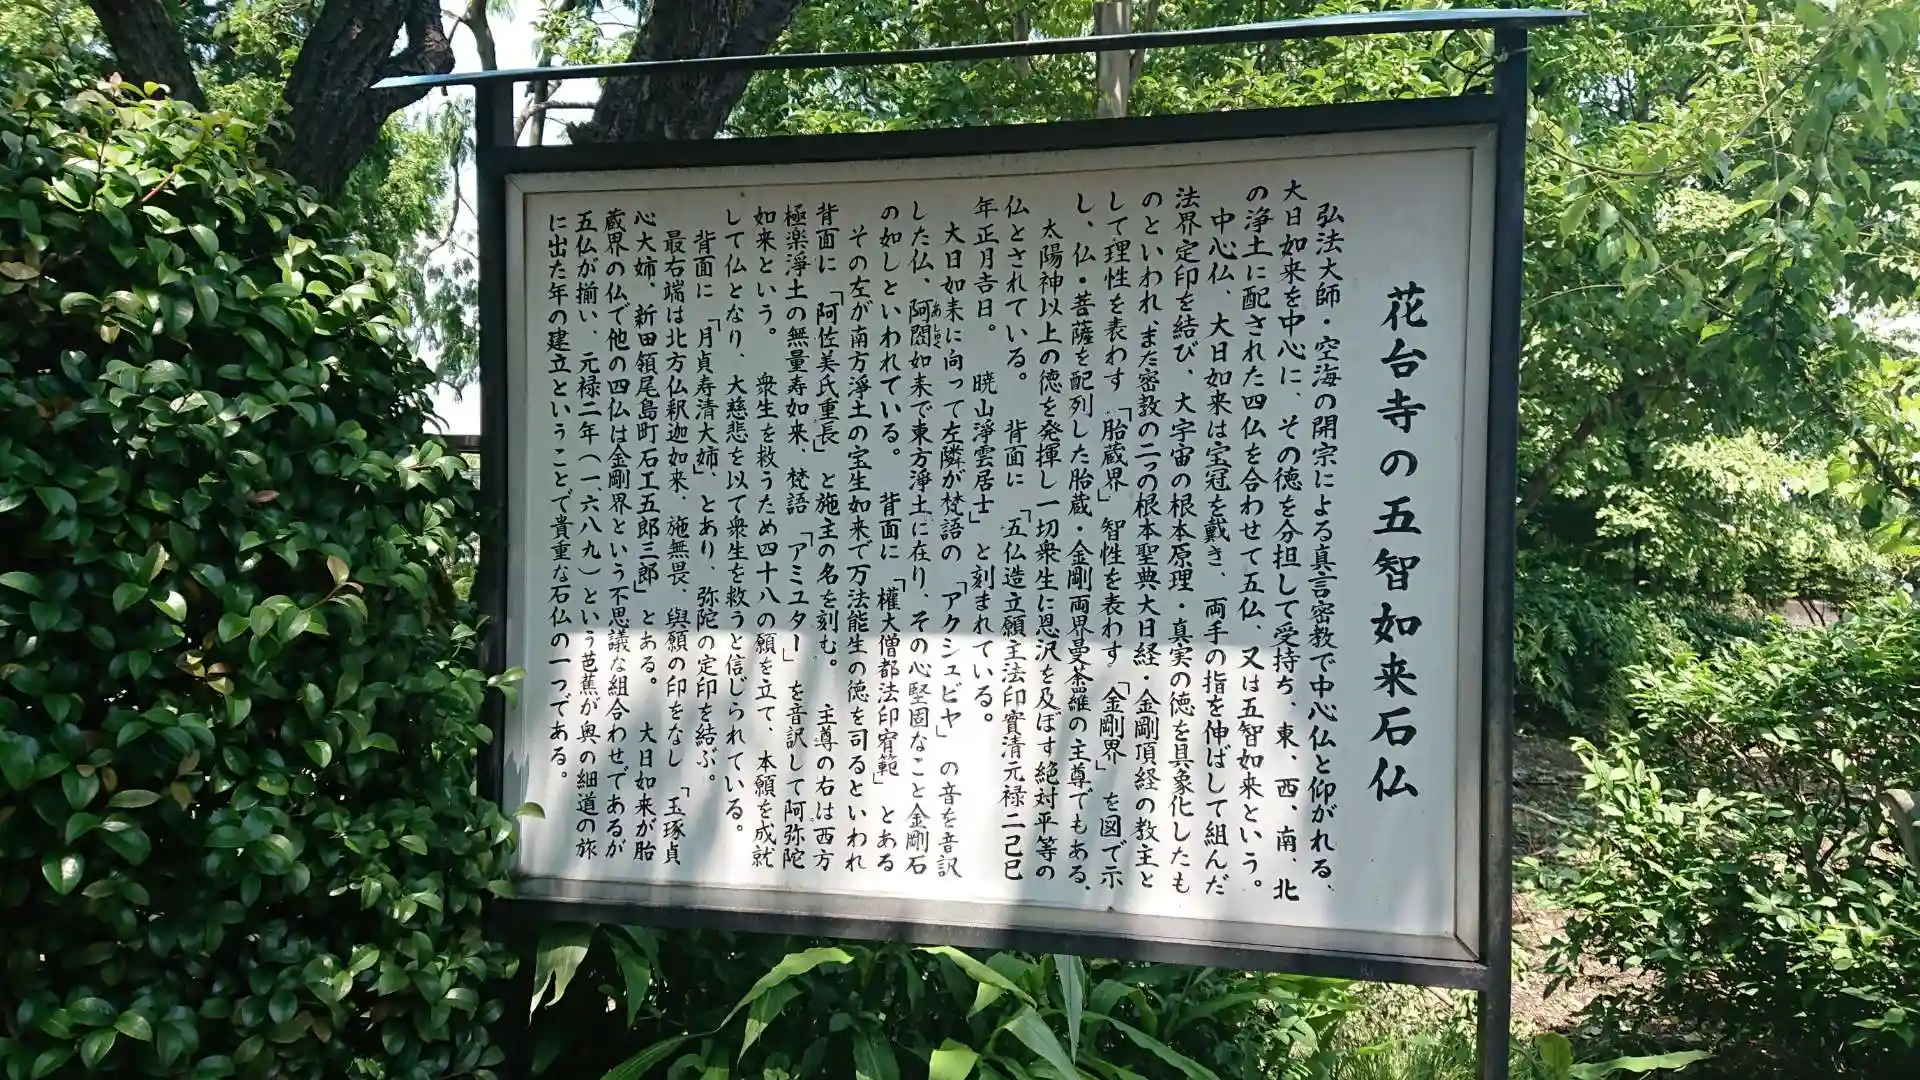 花台寺の五智如来石仏
弘法大師・空海の開宗による真言密教で中心仏と仰がれる、
大日如来を中心に、その徳を分担して受持ち、東、西、南、北
の浄土に配された四仏を合わせて五仏、又は五智如来という。
中心仏、大日如来は宝冠を戴き、両手の指を伸ばして組んだ
法界定印を結び、大宇宙の根本原理・真実の徳を具象化したも
のといわれ、また密教の二つの根本聖典大日経・金剛頂経の教主と
して理性を表わす「胎蔵界」智性を表わす「金剛界」を図で示
し、仏・菩薩を配列した胎蔵・金剛両界曼荼羅の主尊でもある、
太陽神以上の徳を発揮し一切衆生に恩沢を及ぼす絶対平等の
仏とされている。 背面に「五仏造立願主法印實清元禄二己巳
年正月吉日。 暁山淨雲居士」と刻まれている。
大日如来に向って左隣が梵語の「アクシュビヤ」の音を音訳
した仏、阿閦如来で東方淨土に在り、その心堅固なこと金剛石
あしゅく
の如しといわれている。 背面に「權大僧都法印宥範」とある
その左が南方淨土の宝生如来で万法能生の徳を司るといわれ
背面に「阿佐美氏重長」と施主の名を刻む。 主尊の右は西方
極楽淨土の無量寿如来、梵語「アミユター」を音訳して阿弥陀
如来という。 衆生を救うため四十八の願を立て、本願を成就
して仏となり、大慈悲を以て衆生を救うと信じられている。
背面に「月貞寿清大姉」とあり、弥陀の定印を結ぶ。
最右端は北方仏釈迦如来、施無畏、與願の印をなし「玉琢貞
心大姉、新田領尾島町石工五郎三郎」とある。 大日如来が胎
蔵界の仏で他の四仏は金剛界という不思議な組合わせであるが
五仏が揃い、元禄二年（一六八九）という芭蕉が奥の細道の旅
に出た年の建立ということで貴重な石仏の一つである。